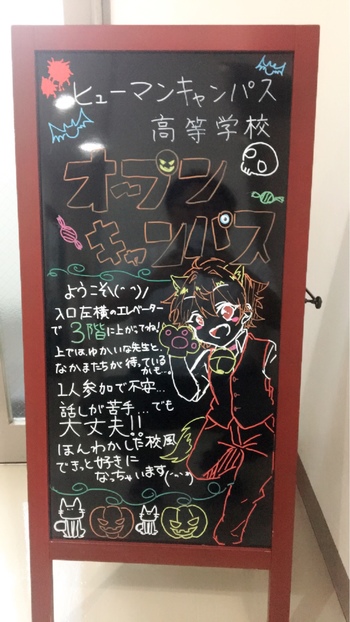 ヒューマンキャンパス
高等学校
オープン
キャンパス
ようこそ\(^^)/
入口左横のエレベーター
で3階に上がってね!!
上では、ゆかいな先生と、
なかまたちが待っている
かも…。
1人参加で不安…
話しが苦手…でも
大丈夫!!
ほんわかした校風
できっと好きに
なっちゃいます(^-^)